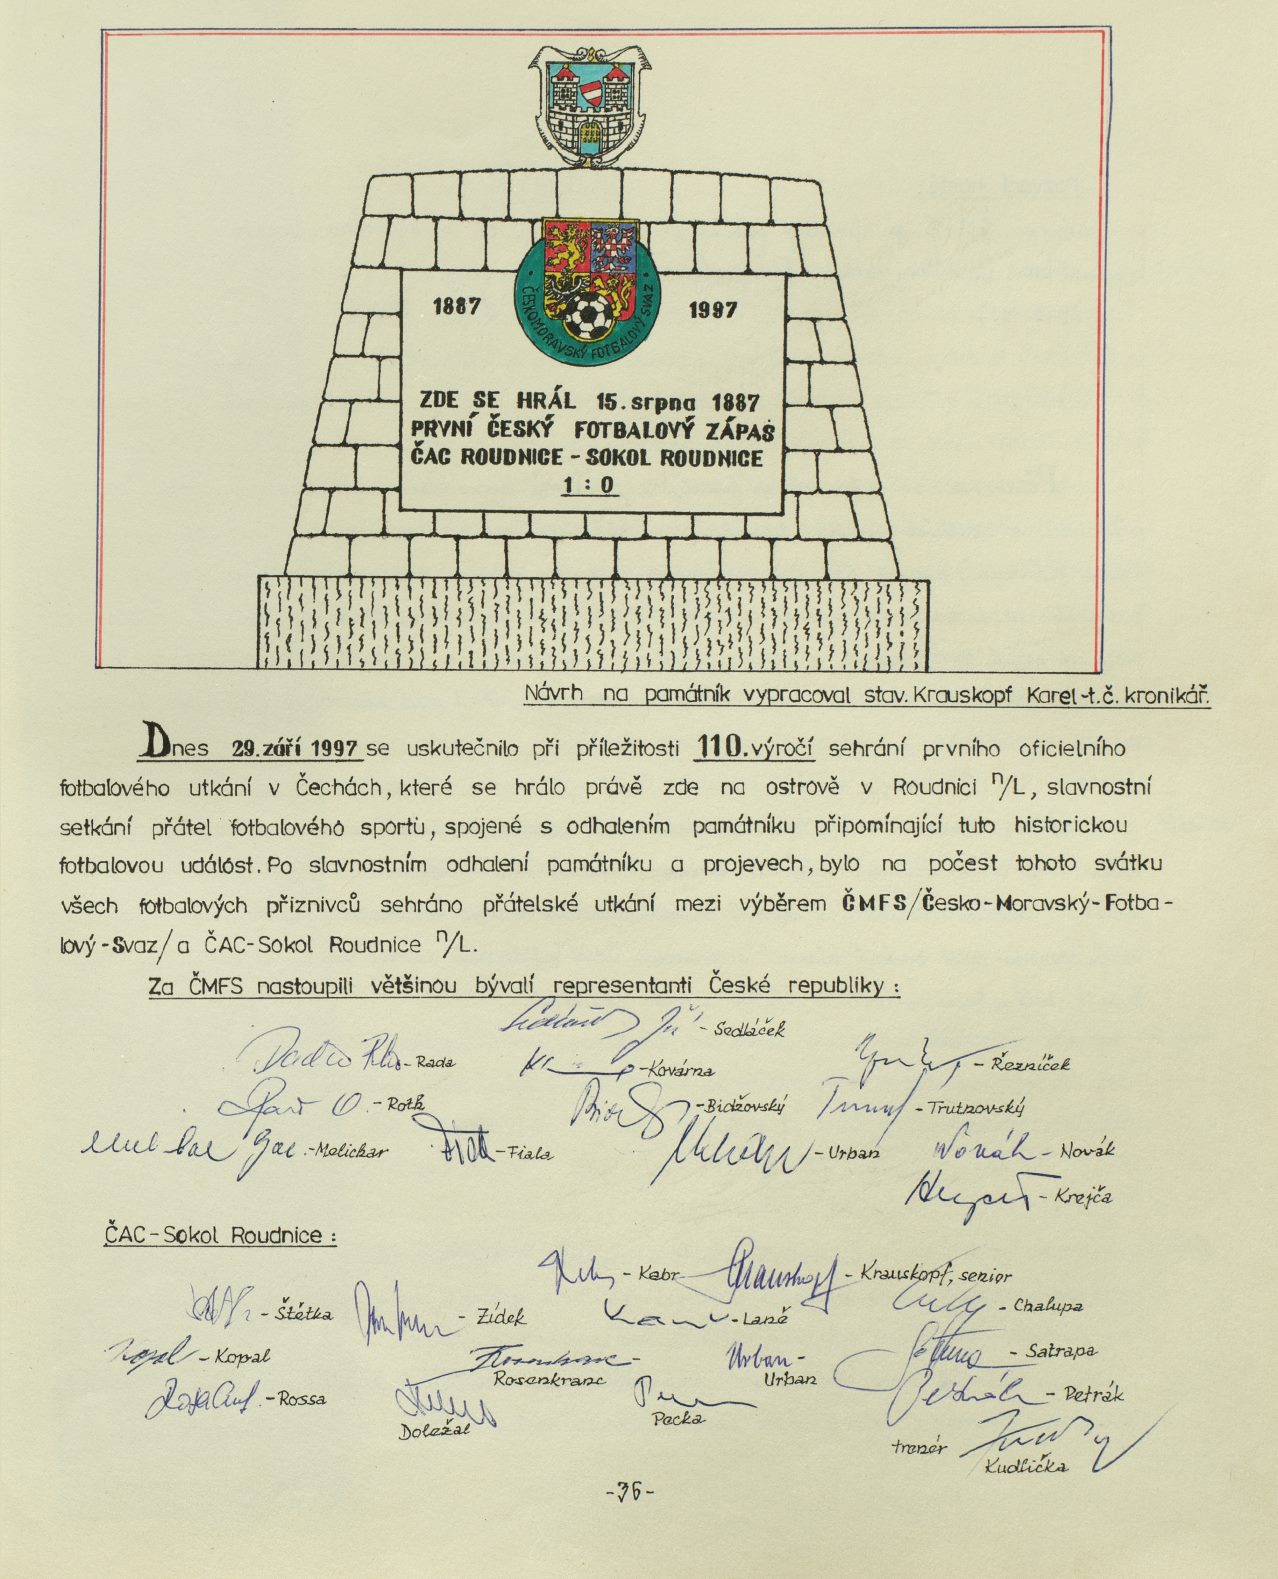 1887
1997
ČESKOMORAVSKÝ FOTBALOVÝ SVAZ
ZDE SE HRÁL 15. srpna 1887
PRVNÍ ČESKÝ FOTBALOVÝ ZÁPAS
ČAC ROUDNICE - SOKOL ROUDNICE
1 : 0
Návrh na památník vypracoval stav. Krauskopf Karel-t.č. kronikář.
Dnes 29. září 1997 se uskutečnilo při příležitosti 110. výročí sehrání prvního oficielního
fotbalového utkání v Čechách, které se hrálo právě zde na ostrově v Roudnici n/L, slavnostní
setkání přátel fotbalového sportu, spojené s odhalením památníku připomínající tuto historickou
fotbalovou událóst. Po slavnostním odhalení památníku a projevech, bylo na počest tohoto svátku
všech fotbalových přiznivců sehráno přátelské utkání mezi výběrem ČMFS/Česko-Moravský-Fotba-
lový-Svaz/ a ČAC-Sokol Roudnice n/L.
Za ČMFS nastoupili většinou bývalí representanti České republiky :
- Sedláček
- Rada - Kovárna - Řezníček
- Roth - Bidžovský - Trutnovský
- Melichar - Fiala - Urban Novák - Novák
- Krejča
ČAC-Sokol Roudnice :
- Kabr Krauskopf - Krauskopf, senior
- Štětka - Zídek - Laně - Chalupa
Kopal - Kopal Urban - - Satrapa
Rosenkranc Urban
- Rossa Petrák - Petrák
Doležal Pecka
trenér
Kudlička
-36-